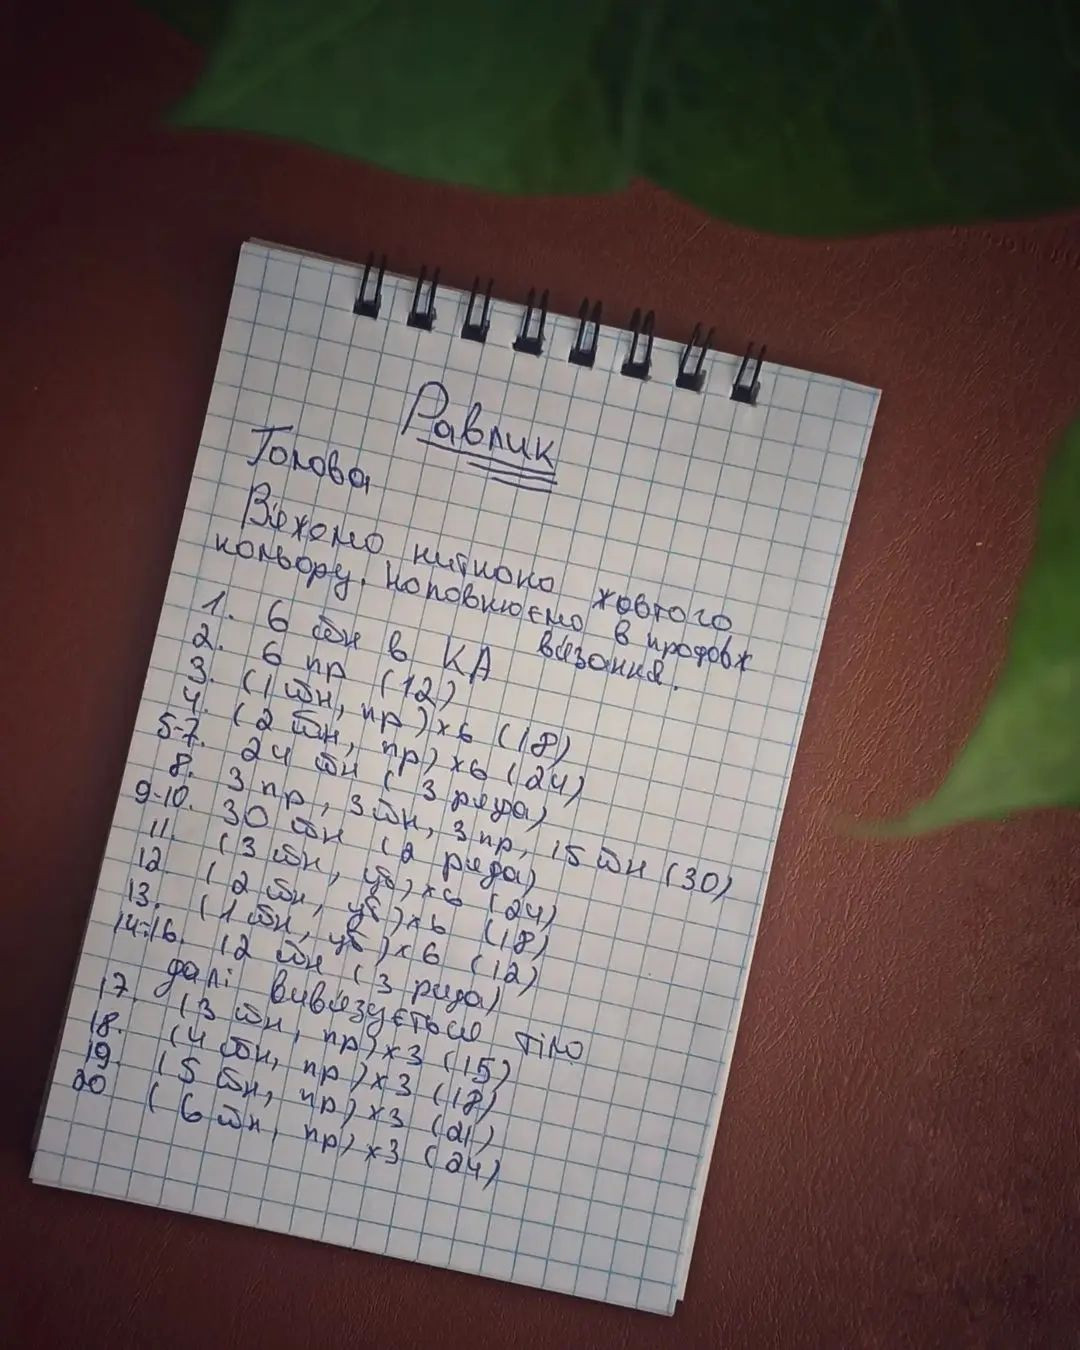 Равлик
Голова
В'яжемо ниткою жовтого
кольору, наповнюємо в продовж
в'язання.
1. 6 збн в КА
2. 6 пр (12)
3. (1 збн, пр)x6 (18)
4. (2 збн, пр)x6 (24)
5-7. 24 збн (3 ряда)
8. 3 пр, 3 збн, 3 пр, 15 збн (30)
9-10. 30 збн (2 ряда)
11. (3 збн, уб)x6 (24)
12 (2 збн, уб)x6 (18)
13. (1 збн, уб)x6 (12)
14-16. 12 збн (3 ряда)
далі вивязується тіло
17. (3 збн, пр)x3 (15)
18. (4 збн, пр)x3 (18)
19. (5 збн, пр)x3 (21)
20 (6 збн, пр)x3 (24)